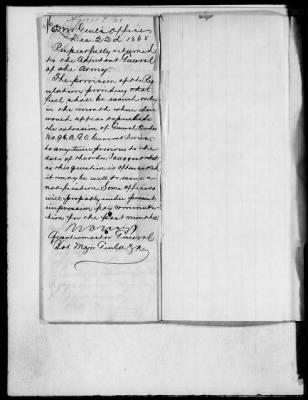 Qr Mr Genl's Office
Dec. 22d 1868
Respectfully returned
to the Adjutant General
of the Army.
The provision of the Reg
ulation providing that
fuel shall be issued only
in the month when due
would appear to preclude
the extension of General Orders
No. A.G.O. current series
to any time previous to the
date of the order. I suggest that
as this question is often asked
it may be well to issue a
notification. Some officers
will probably under present
impression pay commuta
tion for the past months
Quartermaster General
Bvt Major Genl U.S.A.